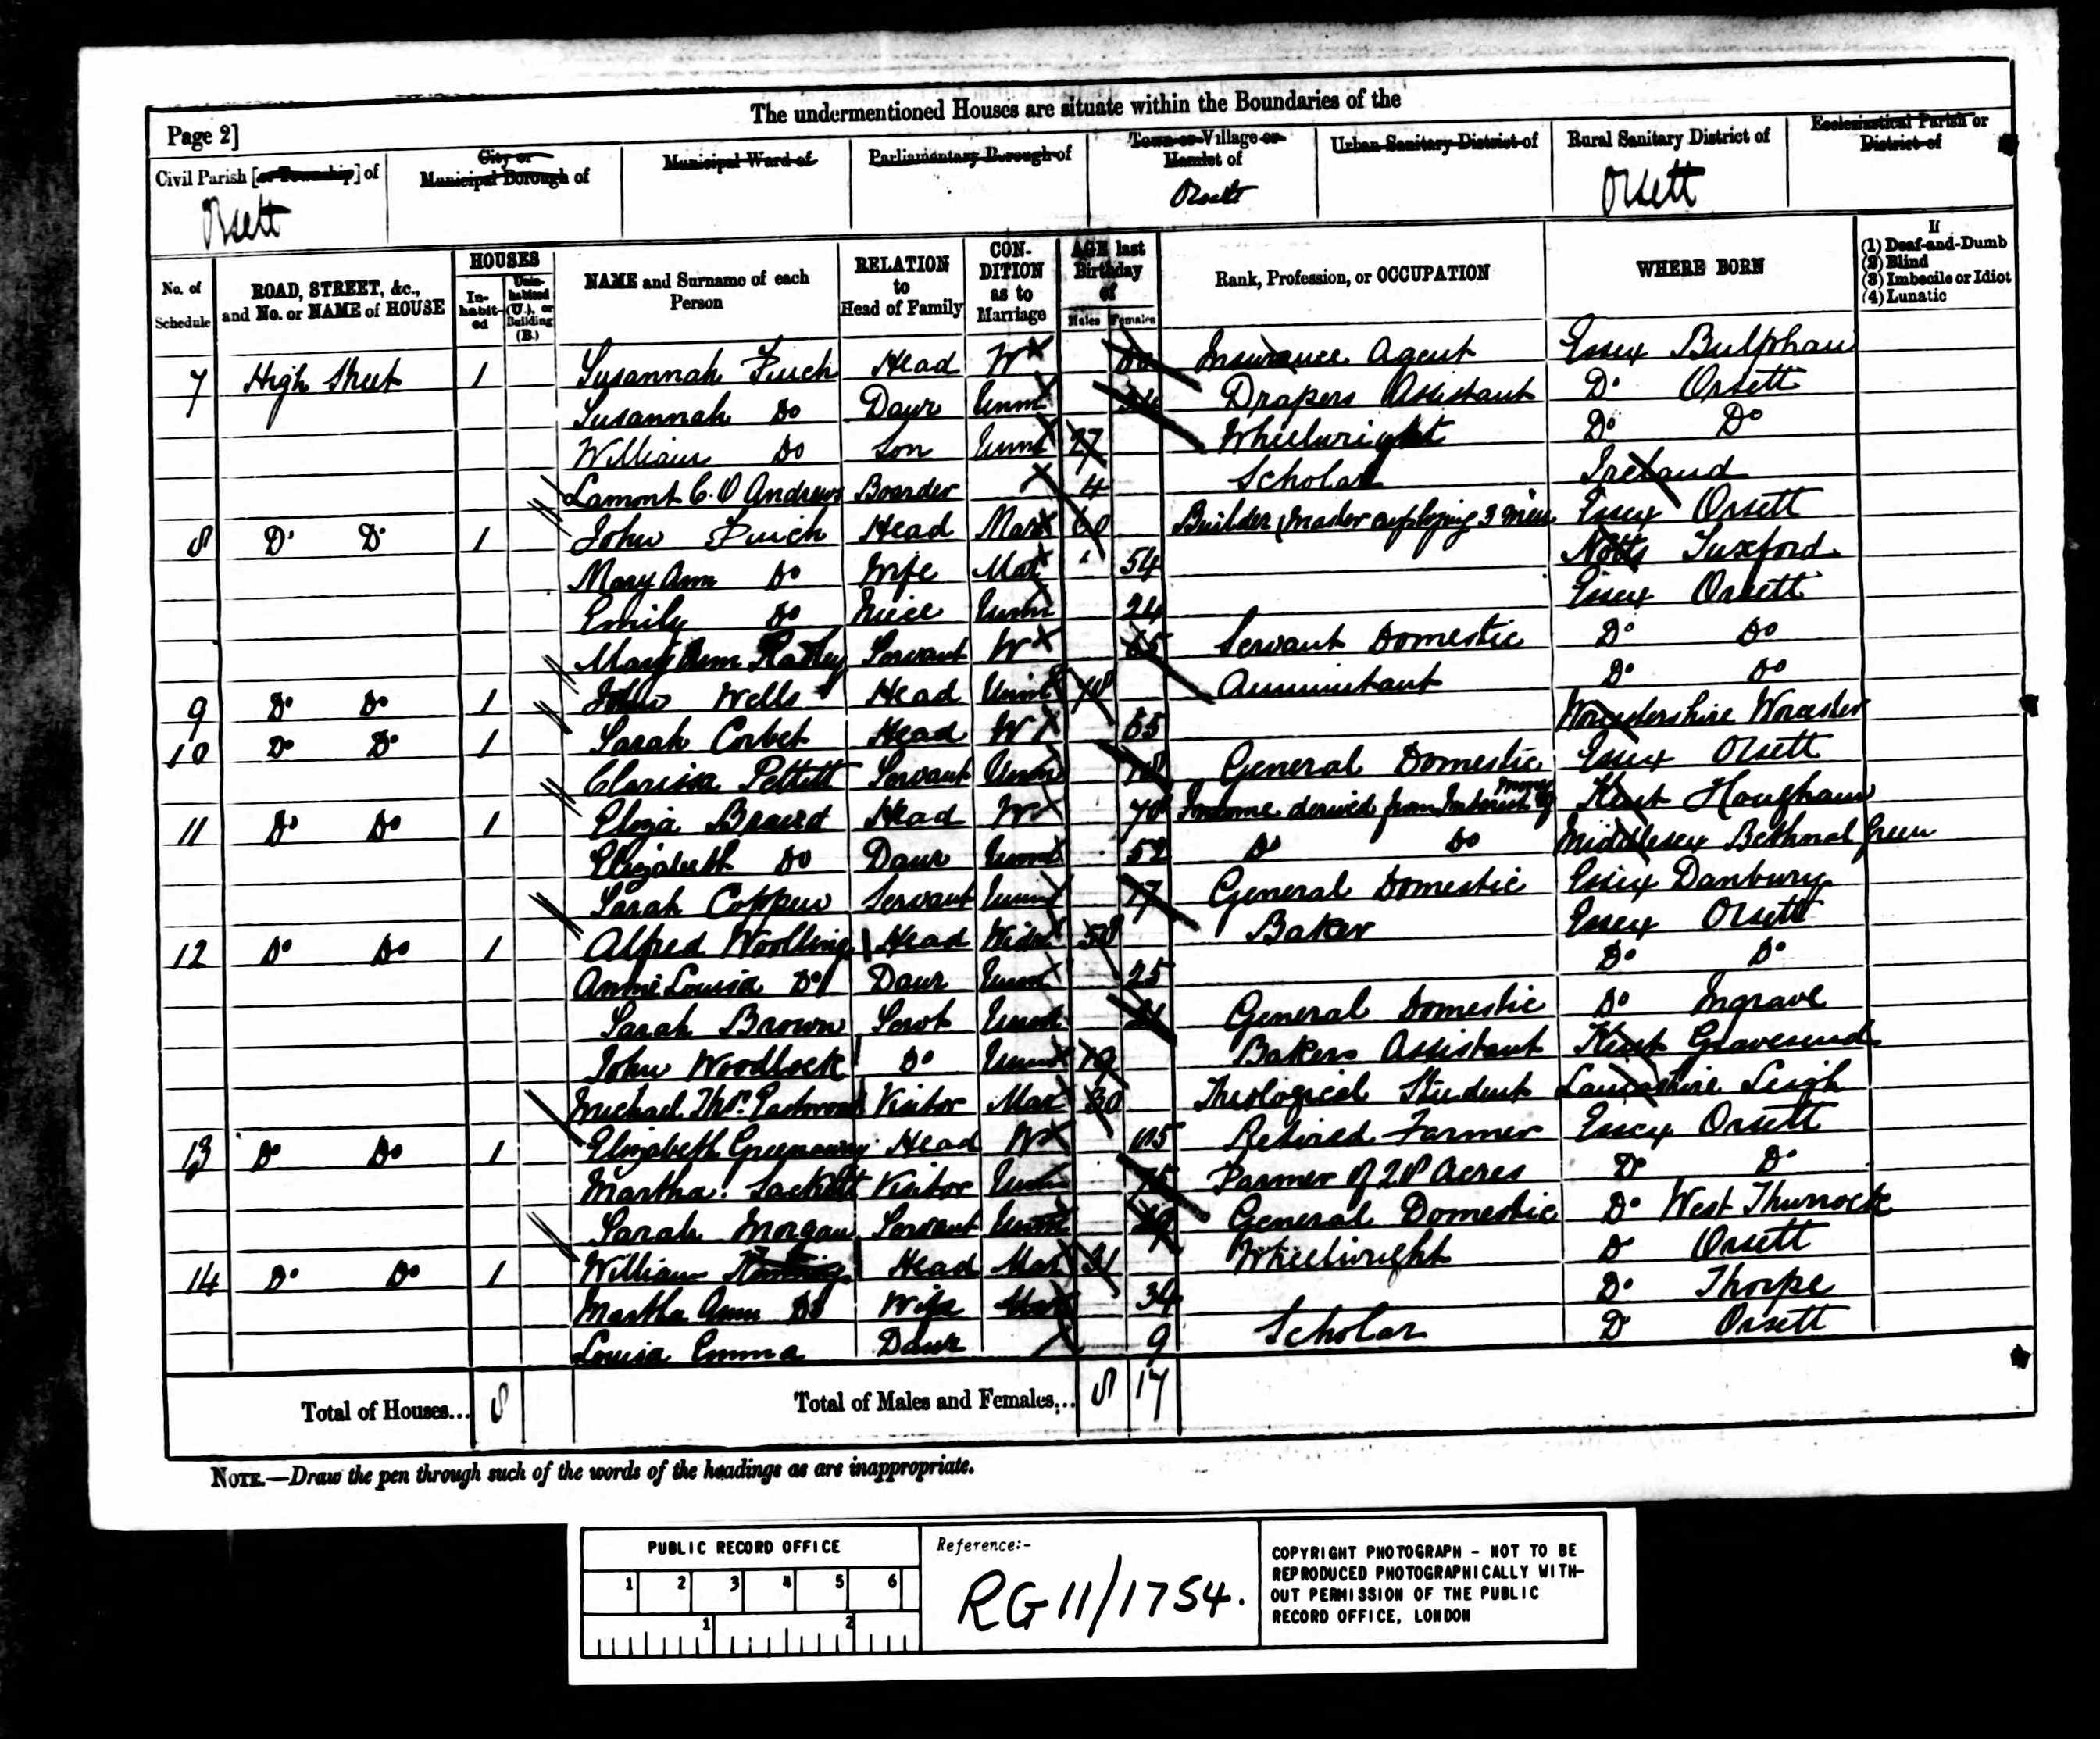 The undermentioned Houses are situate within the Boundaries of the
Page 2]
Civil Parish [or Township] of
City or Municipal Borough of
Municipal Ward of
Parliamentary Borough of
Town or Village or Hamlet of
Urban Sanitary District of
Rural Sanitary District of
Ecclesiastical Parish or District of
Orsett Orsett Orsett
No. of Schedule
ROAD, STREET, &c., and No. or NAME of HOUSE
HOUSES
In-habit-ed
Unin-habited (U.), or Building (B.)
NAME and Surname of each Person
RELATION to Head of Family
CON-DITION as to Marriage
AGE last Birthday of
Males Females
Rank, Profession, or OCCUPATION
WHERE BORN
If
(1) Deaf-and-Dumb
(2) Blind
(3) Imbecile or Idiot
(4) Lunatic
7 High Street 1 Susannah Finch Head W Insurance Agent Essex Bulphan
Susannah Do Daur Unm Drapers Assistant Do Orsett
William Do Son Unm 27 Wheelwright Do Do
Lamont C. O Andrews Boarder 4 Scholar Ireland
8 Do Do 1 John Finch Head Mar 60 Builder Master employing 3 men Essex Orsett
Mary Ann Do Wife Mar 54 Notts Tuxford
Emily Do Niece Unm 24 Essex Orsett
Mary Ann Servant W 65 Servant Domestic Do Do
9 Do Do 1 John Wells Head Unm Do Do
10 Do Do 1 Sarah Corbet Head W Worcestershire Worcester
Clarissa Pettitt Servant Unm 18 General Domestic Essex Orsett
11 Do Do 1 Eliza Head W 78 Income derived from Interest of money Kent Hougham
Elizabeth Do Daur Unm 52 Do Do Middlesex Bethnal Green
Sarah Coppen Servant Unm 17 General Domestic Essex Danbury
12 Do Do 1 Alfred Woollings Head Widr 58 Baker Essex Orsett
Annie Louisa Do Daur Unm 25 Do Do
Sarah Brown Servt Unm 21 General Domestic Do Ingrave
John Woodlock Do Unm 19 Bakers Assistant Kent Gravesend
Michael Thos. Visitor Mar 30 Theological Student Lancashire Leigh
13 Do Do 1 Elizabeth Greenaway Head W 85 Retired Farmer Essex Orsett
Martha Sackett Visitor Unm 75 Farmer of 28 Acres Do Do
Sarah Morgan Servant Unm General Domestic Do West Thurrock
14 Do Do 1 William Head Mar 31 Wheelwright Do Orsett
Martha Ann Do Wife Mar 34 Do Thorpe
Louisa Emma Daur 9 Scholar Do Orsett
Total of Houses... 8 Total of Males and Females... 8 17
NOTE.—Draw the pen through such of the words of the headings as are inappropriate.
PUBLIC RECORD OFFICE
1 2 3 4 5 6
1 2
Reference:-
RG 11/1754.
COPYRIGHT PHOTOGRAPH - NOT TO BE
REPRODUCED PHOTOGRAPHICALLY WITH-
OUT PERMISSION OF THE PUBLIC
RECORD OFFICE, LONDON